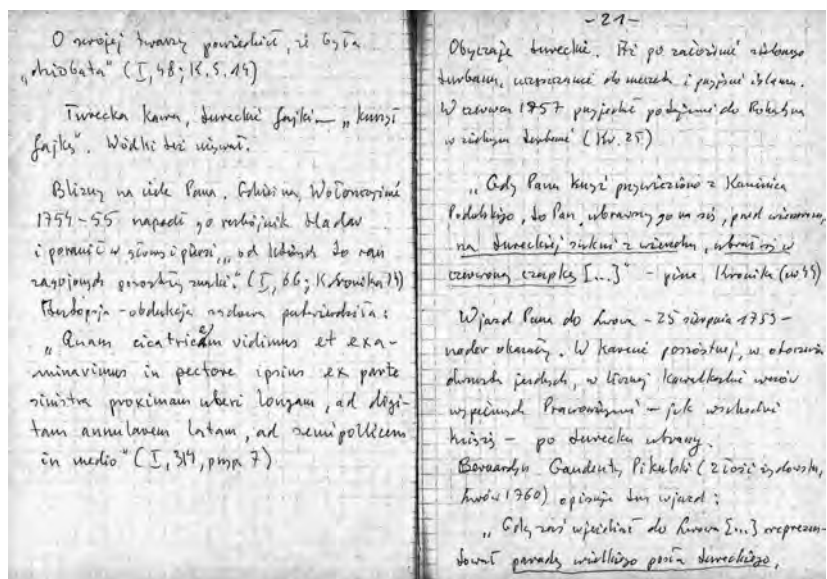 O swojej twarzy powiedział, że była
„dziobata” (I, 48; K. 5.14)
Turecka kawa, tureckie fajki — „kurzył
fajkę”. Wódki też używał.
Blizny na ciele Pana. Gdzieś na Wołoszczyźnie
1754-55 napadł go rozbójnik
i poranił w głowę i piersi, „od których to ran
zagojonych pozostały znaki.” (I, 66; Kronika 14)
- obdukcja sądowa potwierdziła:
„Quam cicatricem vidimus et exa-
minavimus in pectore ipsius ex parte
sinistra proximam uberi longam, ad digi-
tam annularem latam, ad semipollicem
in medio” (I, 314, 7)
-21-
Obyczaje tureckie. Aż po założenie zielonego
turbanu, uczęszczanie do meczetu i przyjęcie islamu.
W czerwcu 1757 przyjechał do Rohatyna
w zielonym turbanie (Kr. 25)
„Gdy Pana przywieziono z Kamieńca
Podolskiego, to Pan, ubrawszy go na sposób, przed wieczorem,
na tureckiej sukni z wierzchu, ubrał się w
czerwoną czapkę [...]” - pisze Kronika (nr 44)
Wjazd Pana do Lwowa - 25 sierpnia 1759 -
nader okazały. W karecie poszóstnej, w otoczeniu
dwunastu jezdnych, w licznej kawalkadzie wozów
wypełnionych Prawowiernymi - jak wschodni
książę - po turecku ubrany.
Bernardyn Gaudenty Pikulski (Złość żydowska,
Lwów 1760) opisuje ten wjazd:
„Gdy zaś wjeżdżał do Lwowa [...] reprezen-
tował paradę wielkiego posła tureckiego,